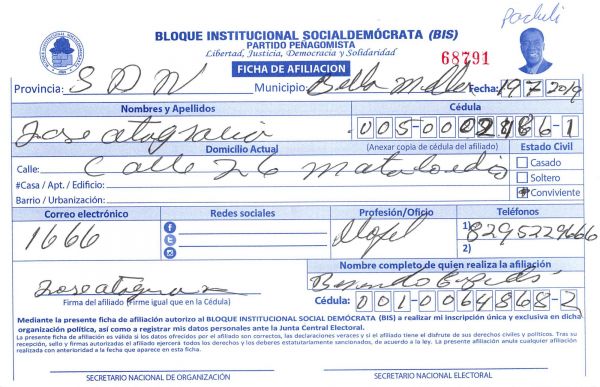 Pacheli
BLOQUE INSTITUCIONAL SOCIALDEMÓCRATA (BIS)
PARTIDO PEÑAGOMISTA
Libertad, Justicia, Democracia y Solidaridad
68791
FICHA DE AFILIACION
Provincia: S D N Municipio: Fecha: 19 7 2019
Nombres y Apellidos Cédula
Jose 005-00
Domicilio Actual (Anexar copia de cédula del afiliado) Estado Civil
Calle: Calle 26
Casado
#Casa / Apt. / Edificio:
Soltero
Barrio / Urbanización:
Conviviente
Correo electrónico Redes sociales Profesión/Oficio Teléfonos
1666 1) 8295229666
2)
Nombre completo de quien realiza la afiliación
Jose
Firma del afiliado (Firme igual que en la Cédula) Cédula: 001-0064868-2
Mediante la presente ficha de afiliación autorizo al BLOQUE INSTITUCIONAL SOCIAL DEMÓCRATA (BIS) a realizar mi inscripción única y exclusiva en dicha
organización política, así como a registrar mis datos personales ante la Junta Central Electoral.
La presente ficha de afiliación es válida si los datos ofrecidos por el afiliado son correctos, las declaraciones veraces y si el afiliado tiene el disfrute de sus derechos civiles y políticos. Tras su
recepción, sello y firmas autorizados el afiliado ejercerá todos los derechos y los deberes estatutariamente sancionados, de acuerdo a la ley. La presente afiliación anula cualquier afiliación
realizada con anterioridad a la fecha que aparece en esta ficha.
SECRETARIO NACIONAL DE ORGANIZACIÓN SECRETARIO NACIONAL ELECTORAL